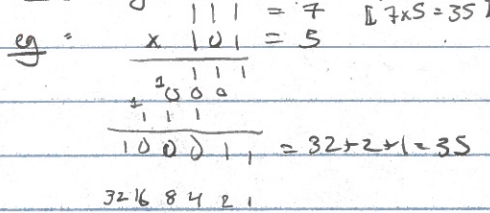 111 = 7 [[ 7x5 = 35 ]
eg: x 101 = 5
111
1000
1111
100011 = 32+2+1 = 35
32 16 8 4 2 1